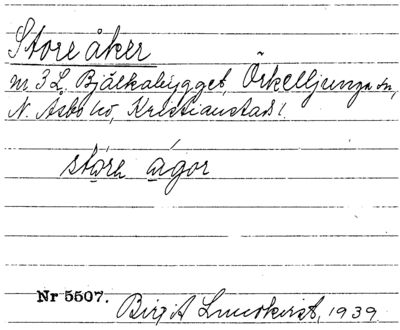 Store åker
nr 3 L. Bjälkabygget, Örkelljunga sn,
N. Åsbo hd, Kristianstad l.
störe ågor
Nr 5507.
Birgit Lundkvist, 1939